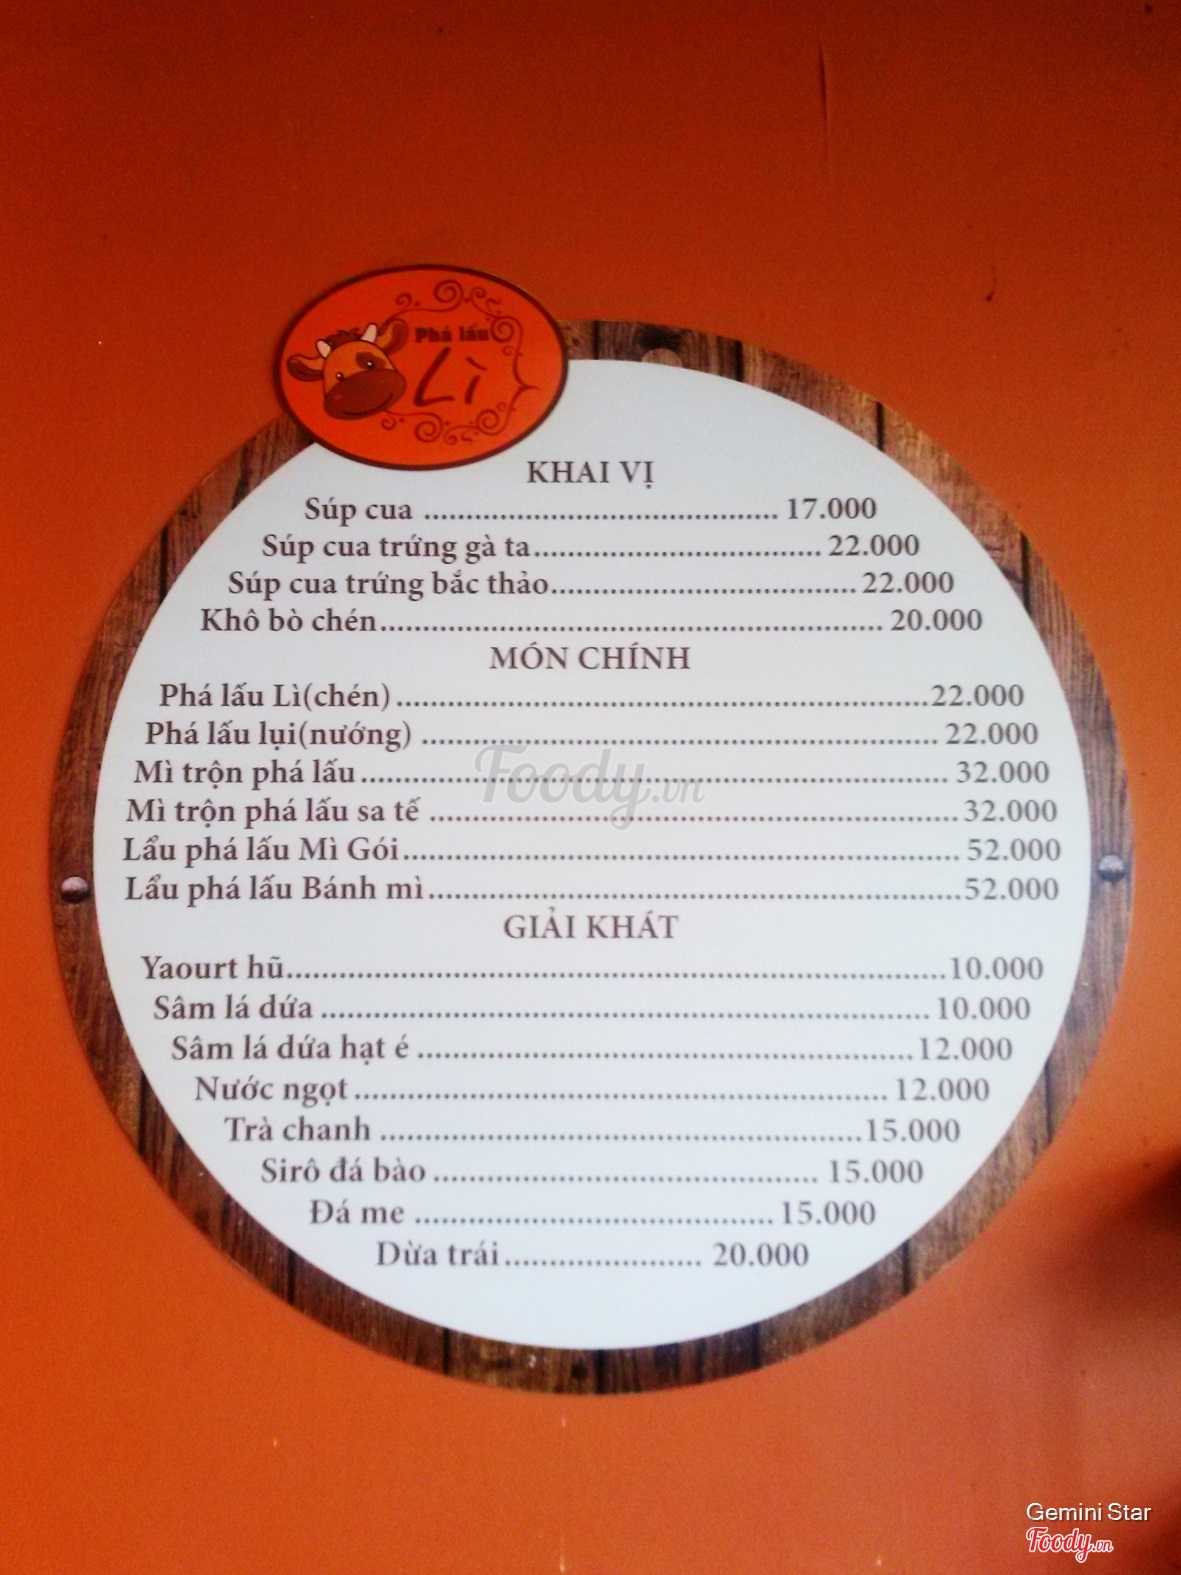 Phá lấu
Lì
KHAI VỊ
Súp cua ........................................ 17.000
Súp cua trứng gà ta................................ 22.000
Súp cua trứng bắc thảo.................................. 22.000
Khô bò chén........................................................ 20.000
MÓN CHÍNH
Phá lấu Lì(chén)............................................................22.000
Phá lấu lụi(nướng) .......................................................... 22.000
Mì trộn phá lấu.................................................................. 32.000
Mì trộn phá lấu sa tế ............................................................ 32.000
Lẩu phá lấu Mì Gói............................................................... 52.000
Lẩu phá lấu Bánh mì............................................................52.000
GIẢI KHÁT
Yaourt hũ..........................................................................10.000
Sâm lá dứa .................................................................... 10.000
Sâm lá dứa hạt é ........................................................12.000
Nước ngọt............................................................ 12.000
Trà chanh ......................................................15.000
Sirô đá bào ........................................... 15.000
Đá me ........................................ 15.000
Dừa trái...................... 20.000
Foody.vn
Gemini Star
Foody.vn